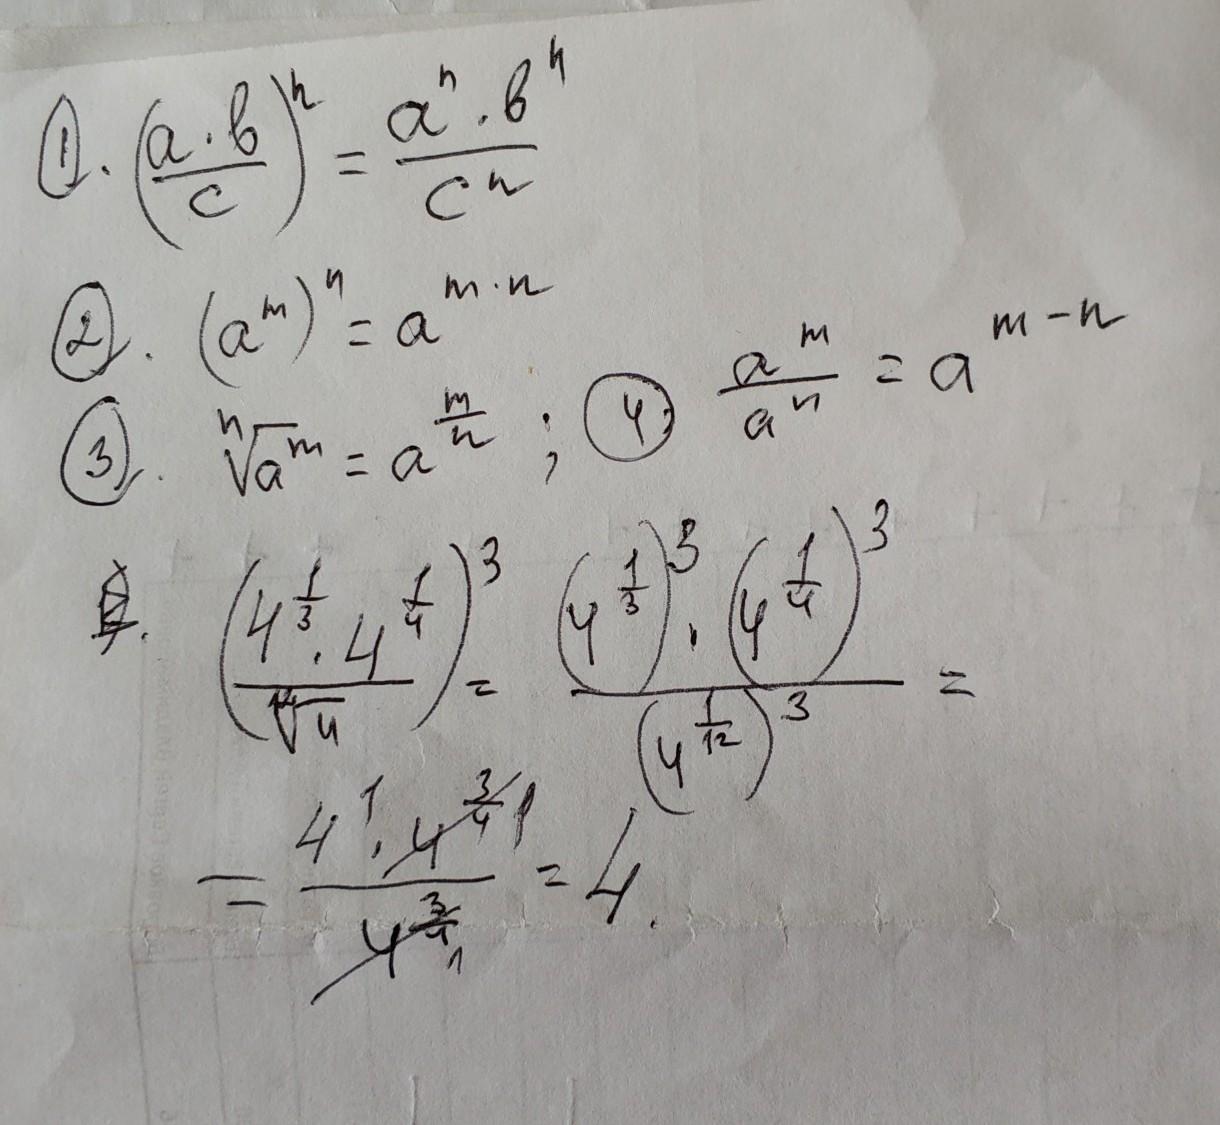 1. (a·b/c)^n = a^n·b^n/c^n
2. (a^m)^n = a^(m·n)
3. ⁿ√a^m = a^(m/n) ; 4. a^m/a^n = a^(m-n)
(4^(1/3)·4^(1/4)/¹²√4)^3 = (4^(1/3))^3·(4^(1/4))^3/(4^(1/12))^3 =
= 4^1·4^(3/4) 1/4^(3/4) 1 = 4.